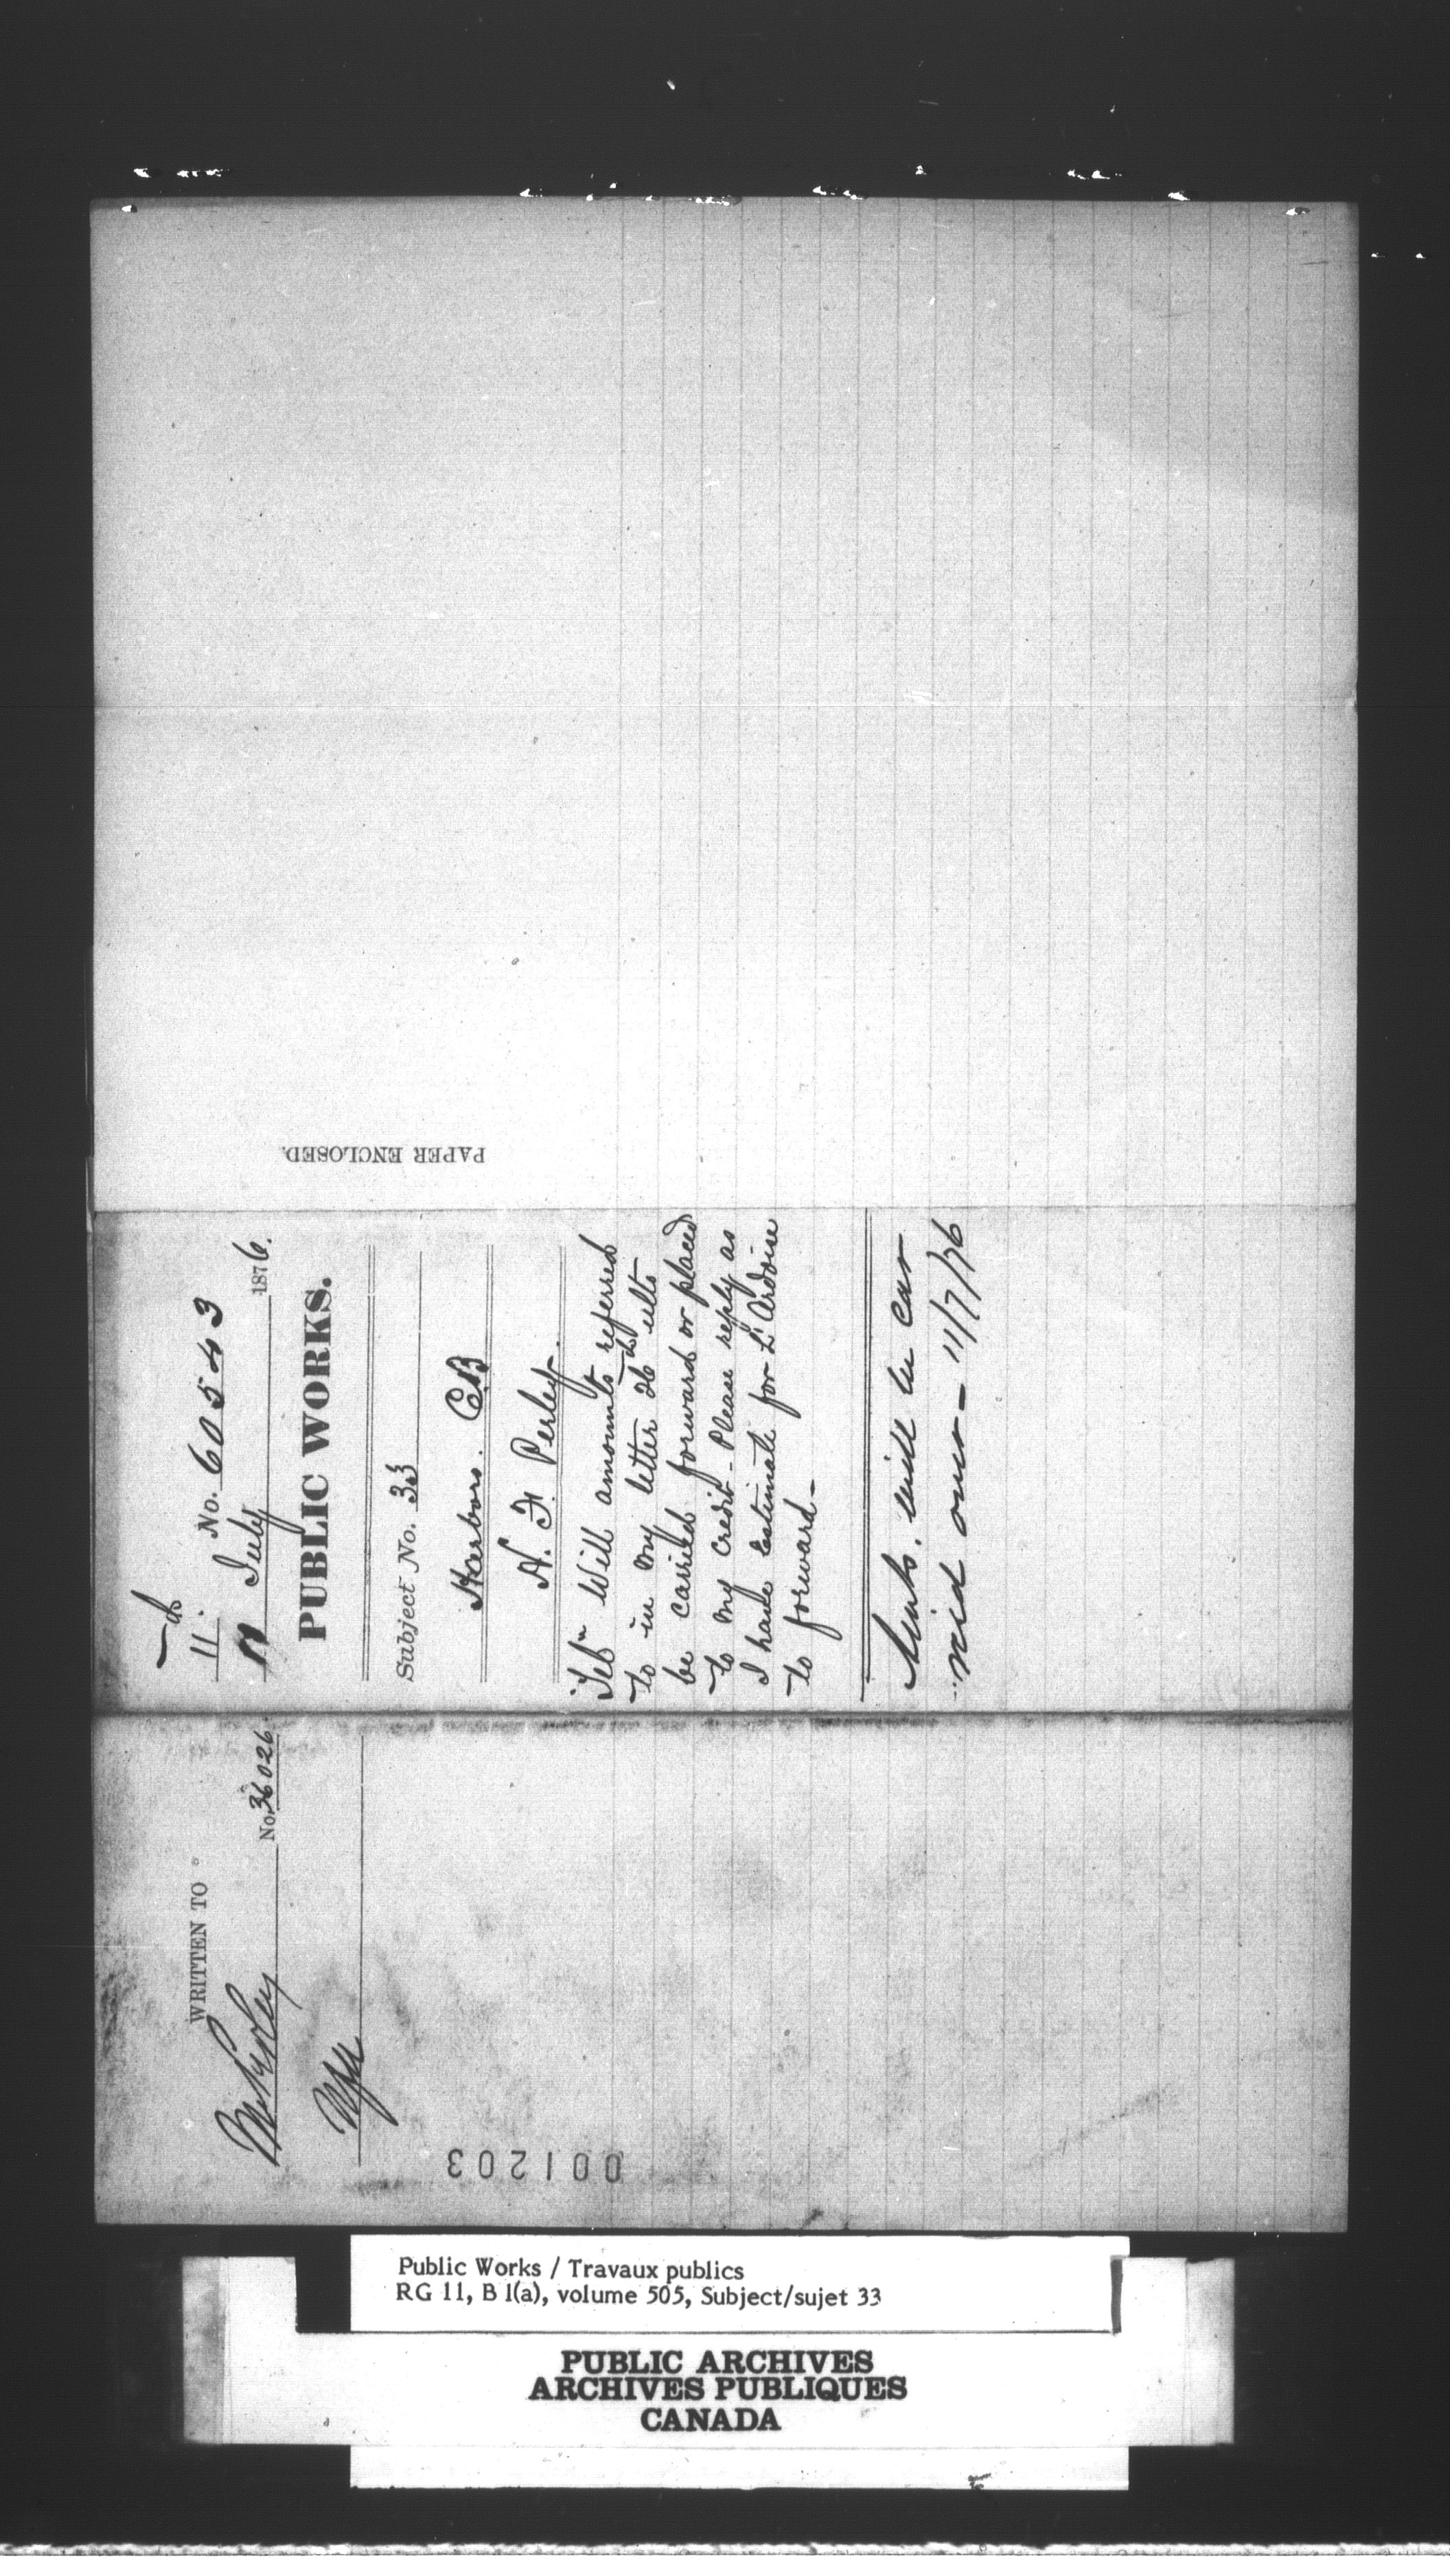 11.
No. 60543
11 July 1876.
PUBLIC WORKS.
Subject No. 33
Harbors. CB
H. F. Perley.
"Teln Will amounts referred
to in my letter 26th ulto
be carried forward or placed
to my credit - Please reply as
I have Estimate for L'Ardoise
to forward -
will be car
ried over - 11/7/76
PAPER ENCLOSED.
WRITTEN TO
Mr Perley No. 36026
001203
Public Works / Travaux publics
RG 11, B 1(a), volume 505, Subject/sujet 33
PUBLIC ARCHIVES
ARCHIVES PUBLIQUES
CANADA